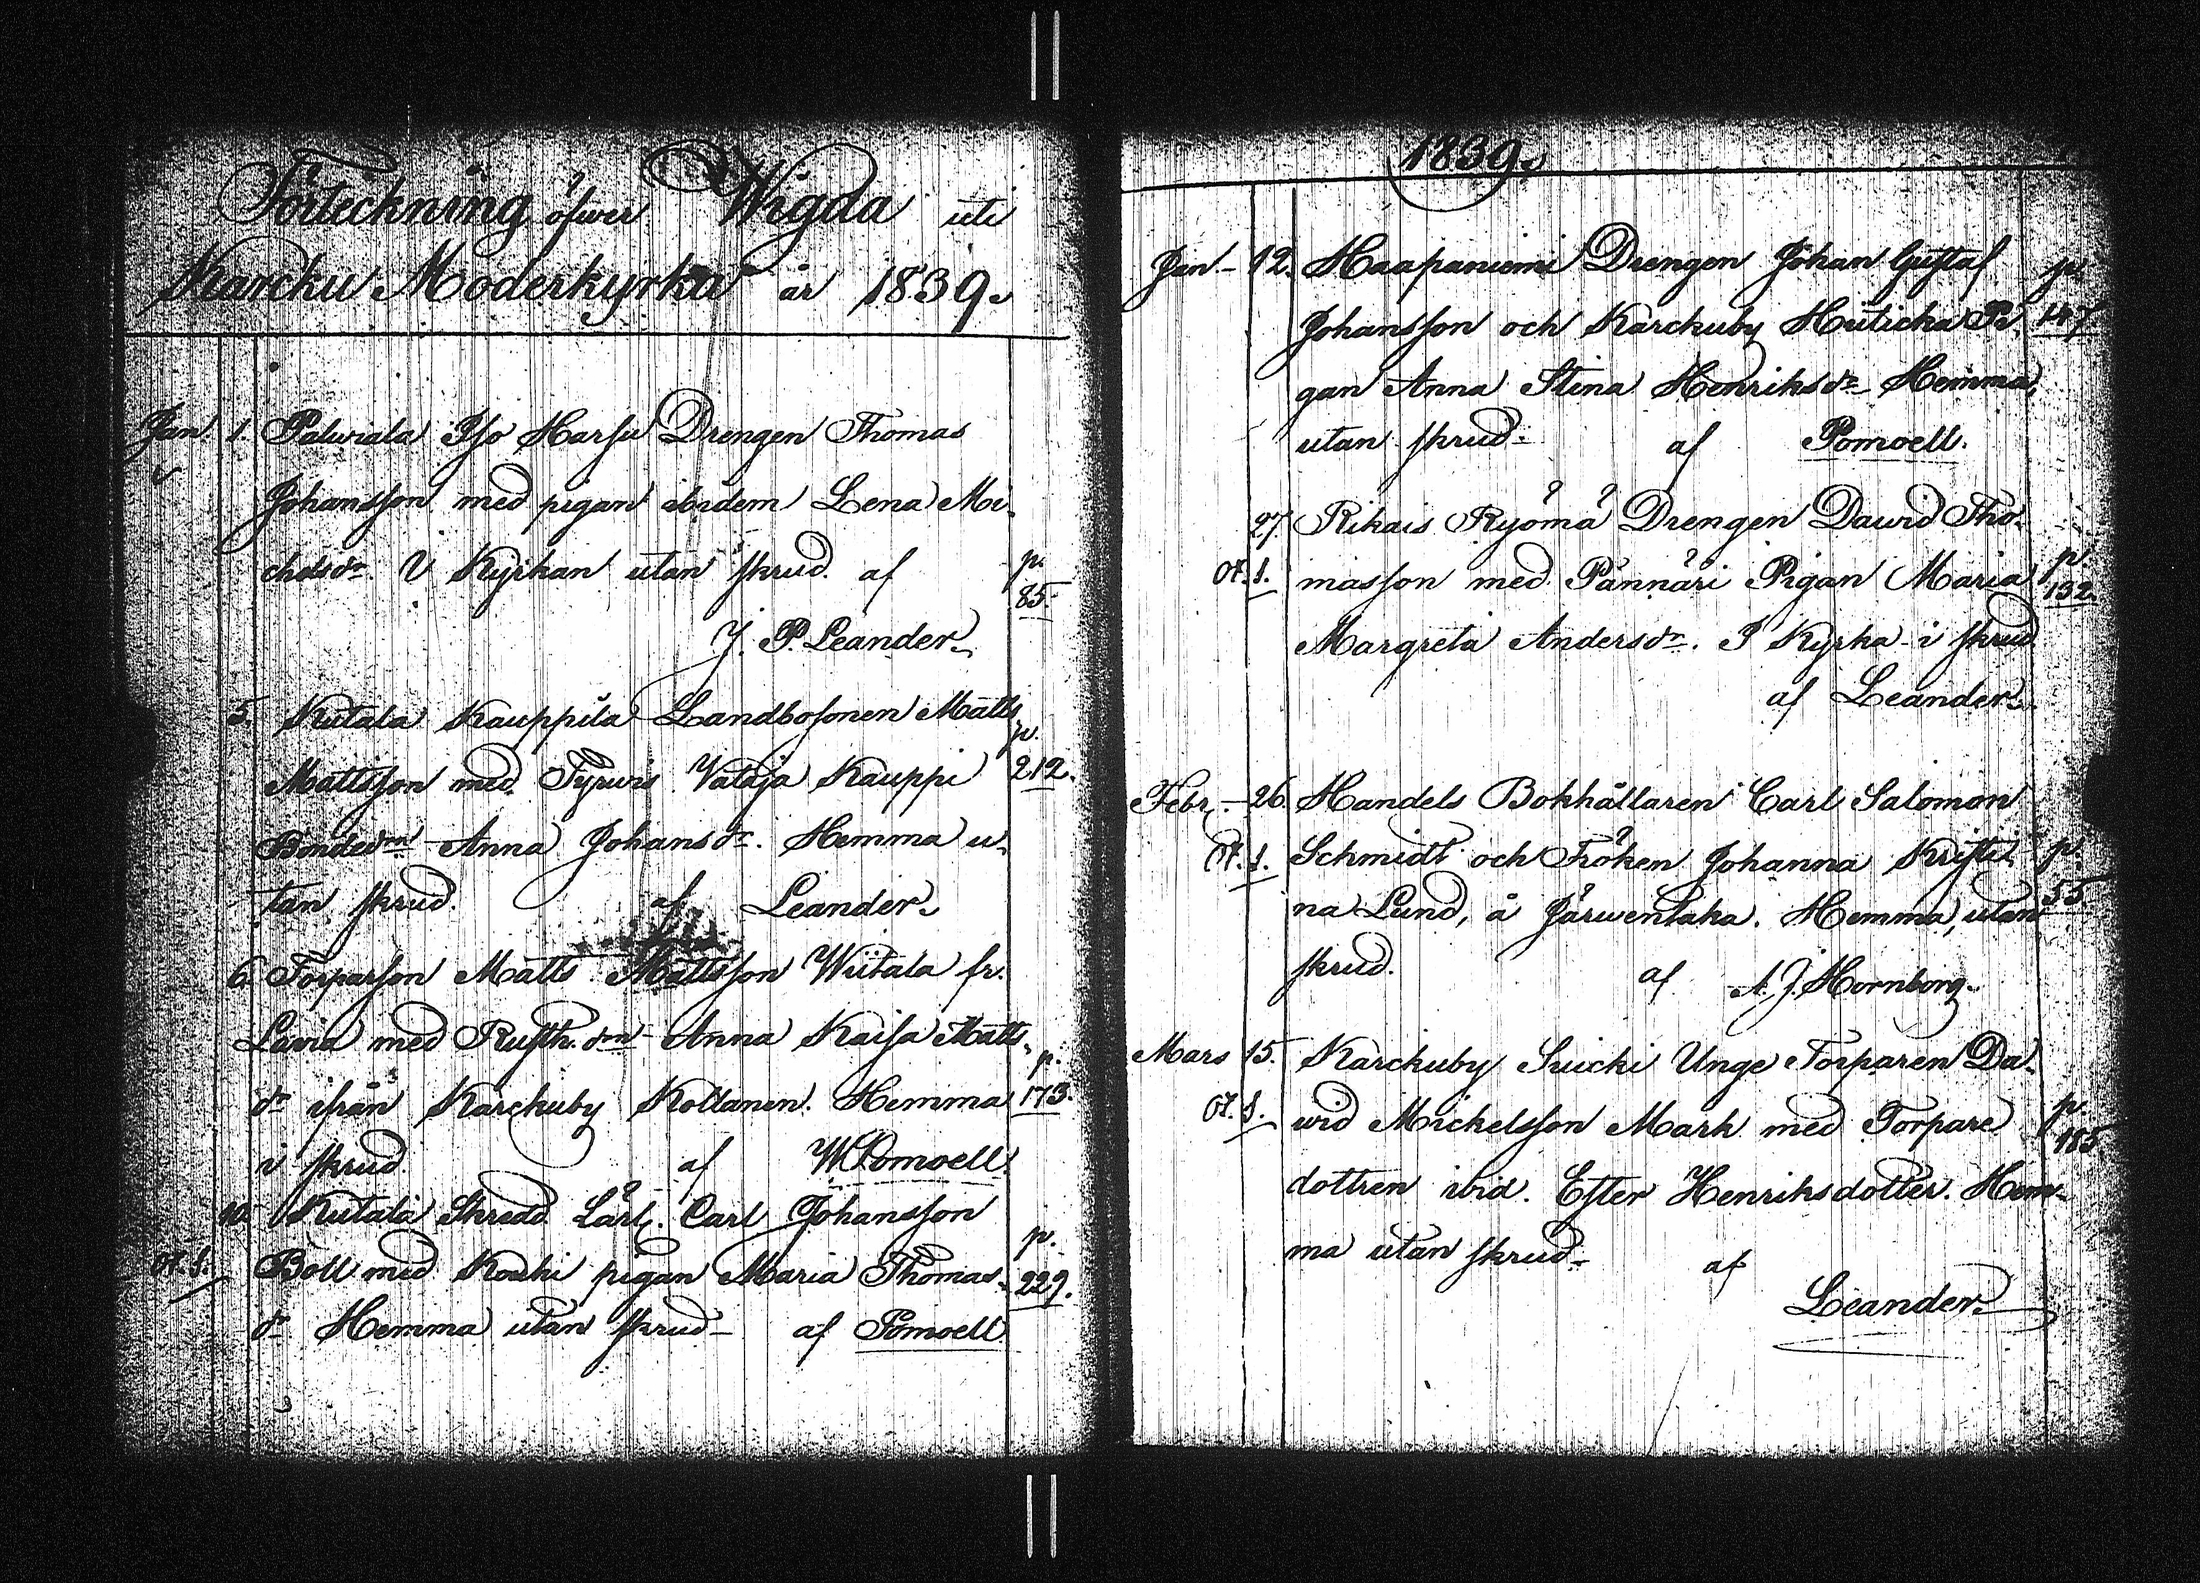 Förteckning öfwer Wigda uti
Karcku Moderkyrka år 1839.
Jan. 1. Palwiala Iso Harsu Drengen Thomas
Johansson med pigan ibidem Lena Mi-
chelsdr. I Kyrkan utan skrud. af p. 85.
J. P. Leander.
5. Kutala Kauppila Landbosonen Matts
Mattsson med Tyrwis Vataja Kauppi p. 212.
Bondedn Anna Johansdr. Hemma u-
tan skrud. af Leander.
6. Torparson Matts Mattsson Wiitala fr.
Lavia med Rusth. dn Anna Kaisa Matts-
dr ifrån Karckuby Kottanen. Hemma p. 173.
i skrud af W Pomoell.
10. Kutala Skredd. Lärl. Carl Johansson
Ot. S. Boll med Kouhi pigan Maria Thomas- p. 229.
dr Hemma utan skrud - af Pomoell.
1839.
Jan - 12. Haapaniemi Drengen Johan Gustaf p.
Johansson och Karckuby Huticka Pi- 147
gan Anna Stina Henriksdr Hemma,
utan skrud - af Pomoell.
27. Rikais Ryömä Drengen David Tho-
Ot. S. masson med Pännäri Pigan Maria p. 132.
Margreta Andersdr. I Kyrka i skrud
af Leander.
Febr. - 26. Handels Bokhållaren Carl Salomon
Ot. S. Schmidt och Fröken Johanna Kristi- p. 55
na Lund, å Järwentaka. Hemma, utan
skrud. af A. J. Hornborg.
Mars 15. Karckuby Suicki Unge Torparen Da-
Ot. S. wid Mickelsson Mark med Torpare p. 185
dottren ibid. Ester Henriksdotter. Hem-
ma utan skrud - af
Leander.